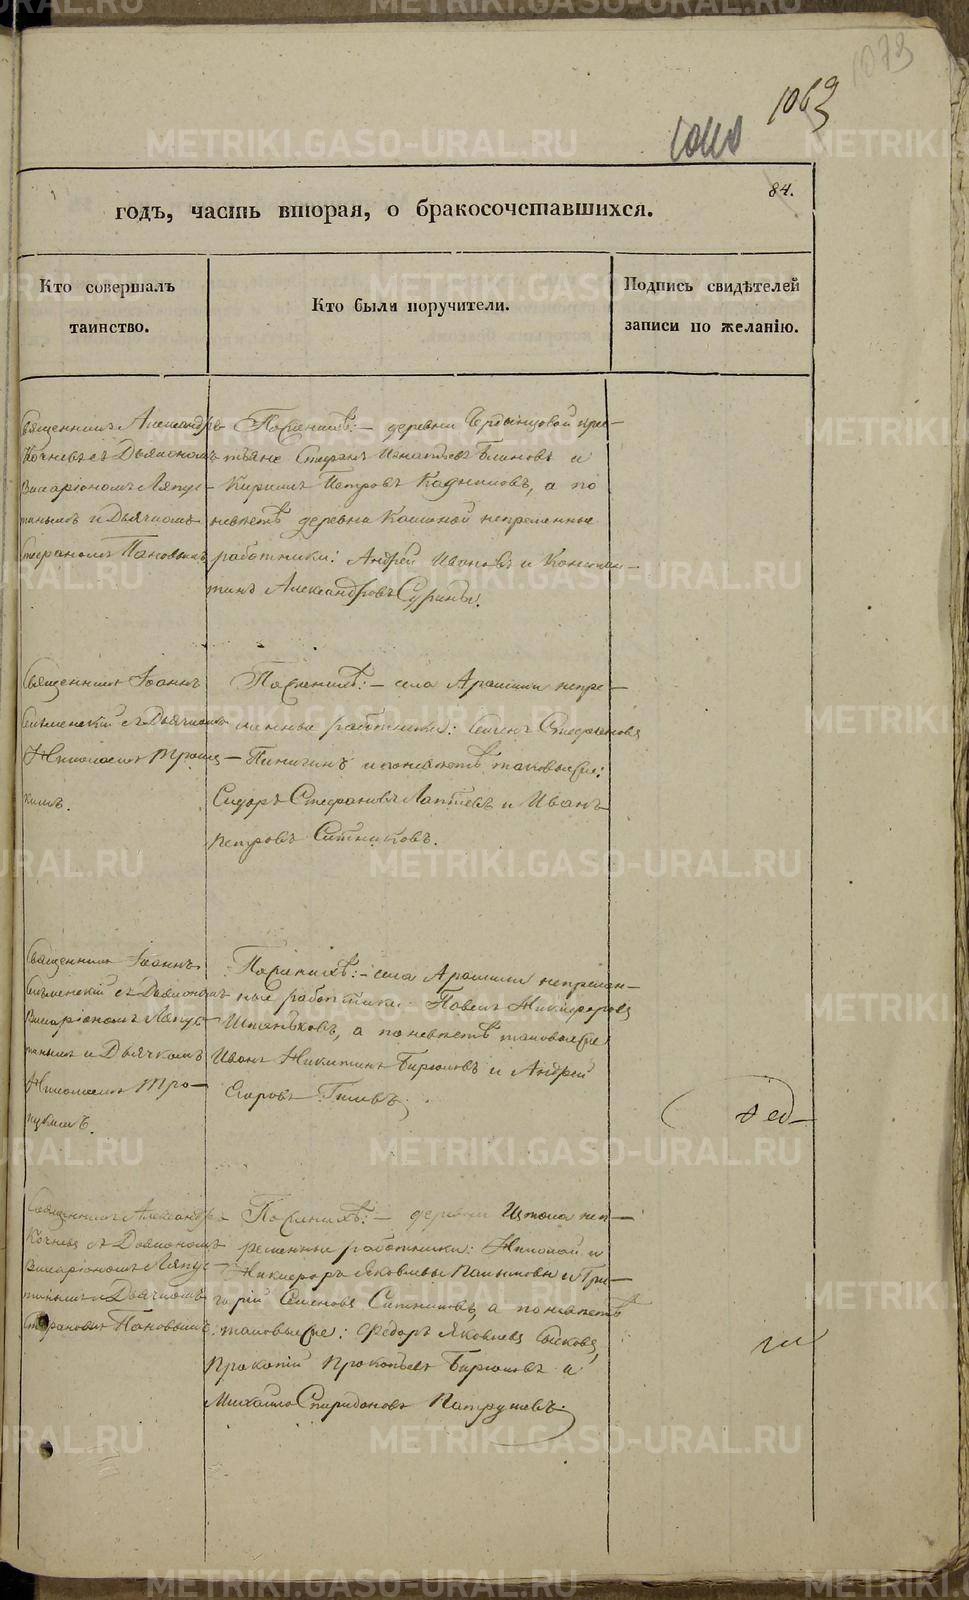 1073
1063
84.
годъ, часть вторая, о бракосочетавшихся.
Кто совершалъ
таинство.
Кто были поручители.
Подпись свидѣтелей
записи по желанію.
Священникъ Александръ
Кочневъ съ Дьякономъ
Виссаріономъ Ляпус-
тинымъ и Дьячкомъ
Стефаномъ Пановымъ
По женихѣ: – деревни крес-
тьяне Стефанъ Игнатьевъ Блиновъ и
Кирилъ Петровъ а по
невѣстѣ деревни непременные
работники: Андрей Ивановъ и Констан-
тинъ Александровъ Сурины.
Священникъ Іоаннъ
съ Дьячкомъ
Николаемъ Троиц-
кимъ.
По женихѣ: – села Арамили непре-
менные работники: Семенъ Стефановъ
Пинигинъ и по невѣстѣ таковые же:
Сидоръ Стефановъ Лаптевъ и Иванъ
Петровъ Ситниковъ.
Священникъ Іоаннъ
съ Дьякономъ
Виссаріономъ Ляпус-
тинымъ и Дьячкомъ
Николаемъ Тро-
ицкимъ.
По женихѣ: – села Арамили непремен-
ные работники: Павелъ Никифоровъ
а по невѣстѣ таковые же
Иванъ Никитинъ Бирюковъ и Андрей
Егоровъ Гилевъ.
Священникъ Александръ
Кочневъ съ Дьякономъ
Виссаріономъ Ляпус-
тинымъ и Дьячкомъ
Стефаномъ Пановымъ
По женихѣ: – деревни Истока неп-
ременные работники: Николай и
Никифоръ Яковлевы и Гри-
горій Семеновъ Ситниковъ, а по невѣстѣ
таковые же: Федоръ Яковлевъ
Прокопій Прокопьевъ Бирюковъ и
Михаило Спиридоновъ Патрушевъ.
METRIKI.GASO-URAL.RU